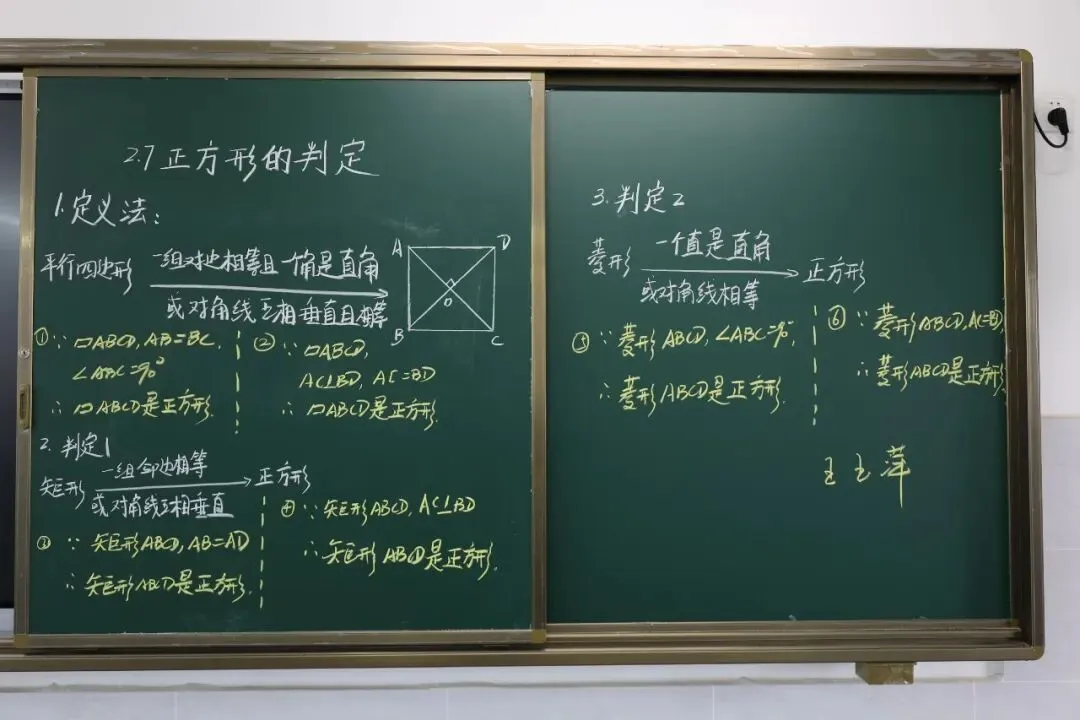 2.7正方形的判定
1.定义法:
平行四边形
一组对边相等且一个角是直角
或对角线互相垂直且相等
A
D
O
B
C
① ∵ □ABCD, AB=BC,
∠ABC=90°
∴ □ABCD是正方形.
② ∵ □ABCD,
AC⊥BD, AC=BD
∴ □ABCD是正方形.
2. 判定1
矩形
一组邻边相等
或对角线互相垂直
正方形
③ ∵ 矩形ABCD, AB=AD
∴ 矩形ABCD是正方形.
④ ∵ 矩形ABCD, AC⊥BD
∴ 矩形ABCD是正方形.
3.判定2
菱形
一个值是直角
或对角线相等
正方形
⑤ ∵ 菱形ABCD, ∠ABC=90°,
∴ 菱形ABCD是正方形.
⑥ ∵ 菱形ABCD, AC=BD,
∴ 菱形ABCD是正方形.
萍